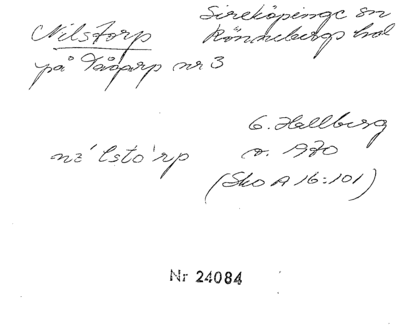 Nilstorp
Sireköpinge sn
Rönnebergs hd
på Tågarp nr 3
G. Hallberg
nɪ´lstɔ`rp
1970
(Sko A 16:101)
Nr 24084